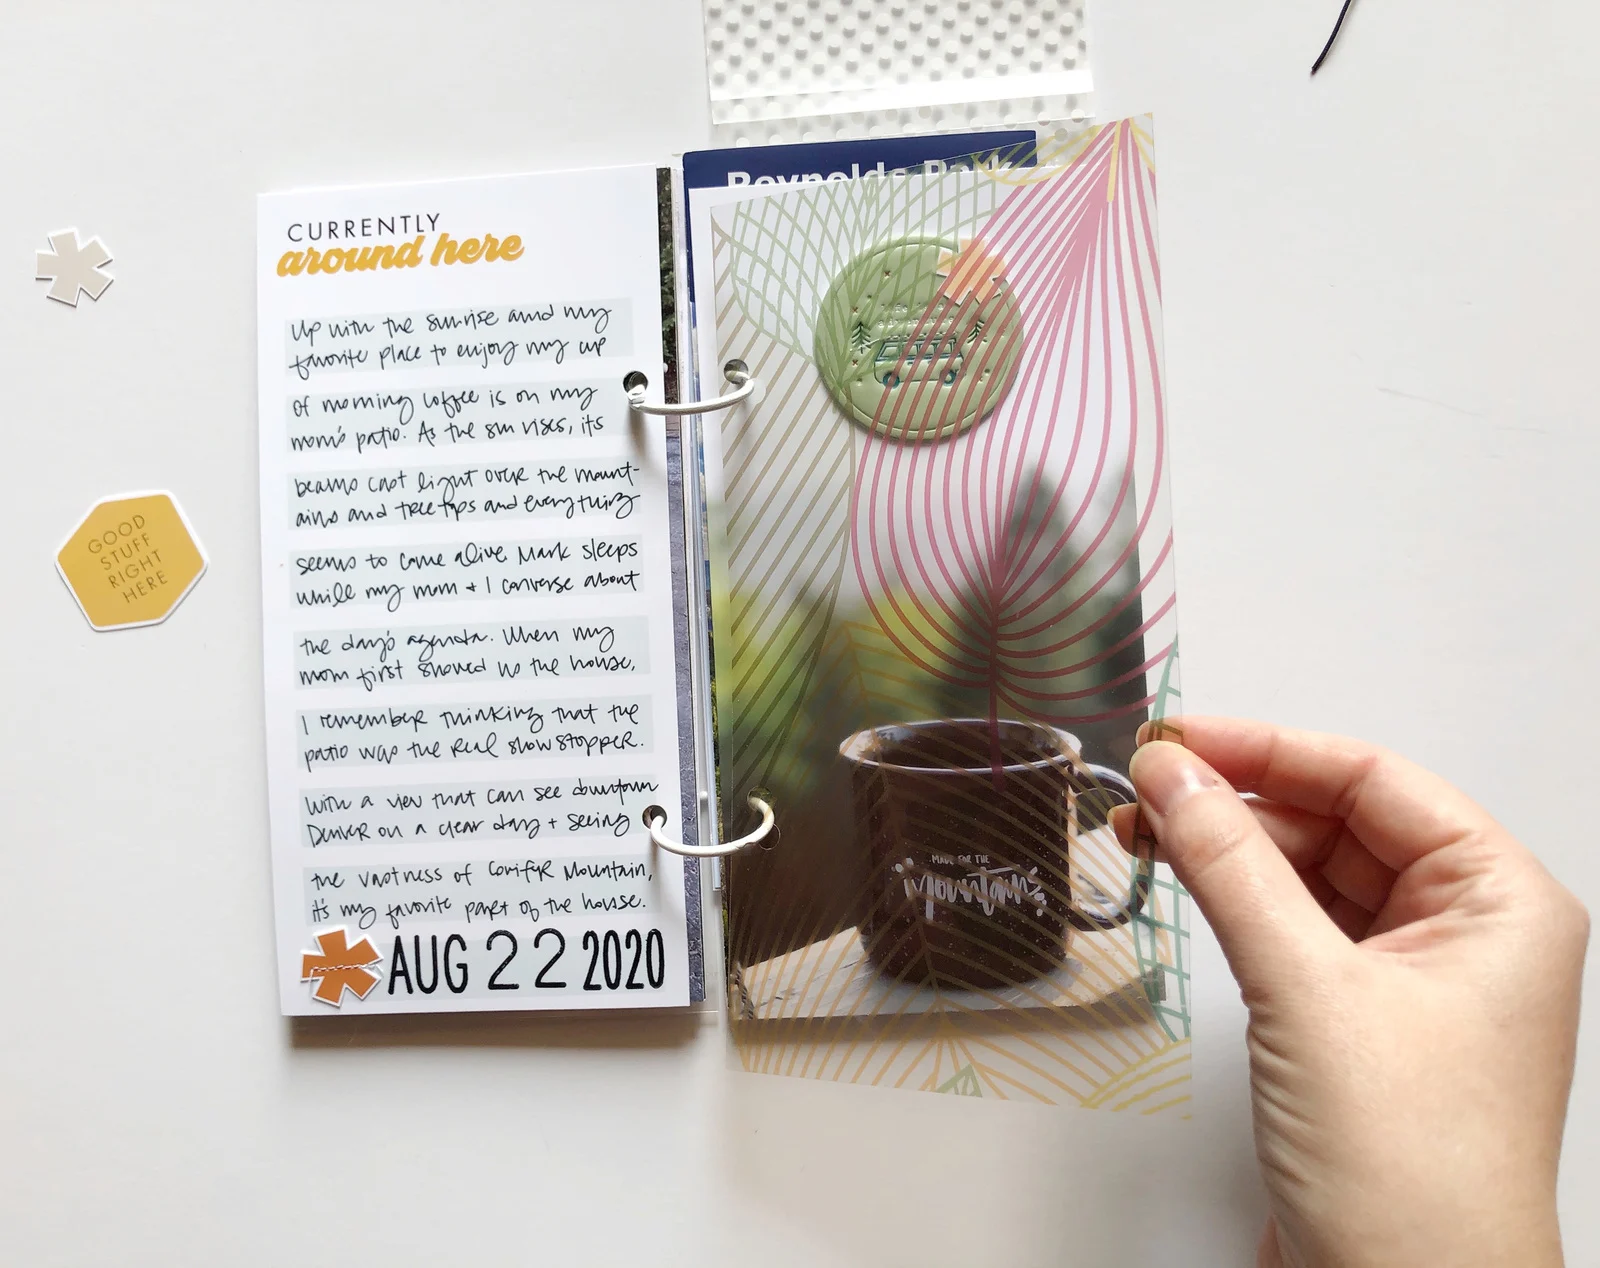 CURRENTLY
around here
Up with the sunrise and my
favorite place to enjoy my cup
of morning coffee is on my
mom's patio. As the sun rises, its
beams cast light over the mount-
ains and treetops and everything
seems to come alive. Mark sleeps
while my mom + I converse about
the day's agenda. When my
mom first showed us the house,
I remember thinking that the
patio was the real showstopper.
With a view that can see downtown
Denver on a clear day + seeing
the vastness of Conifer Mountain,
it's my favorite part of the house.
AUG 22 2020
GOOD
STUFF
RIGHT
HERE
Reynolds Park
adventure
MADE FOR THE
Mountains